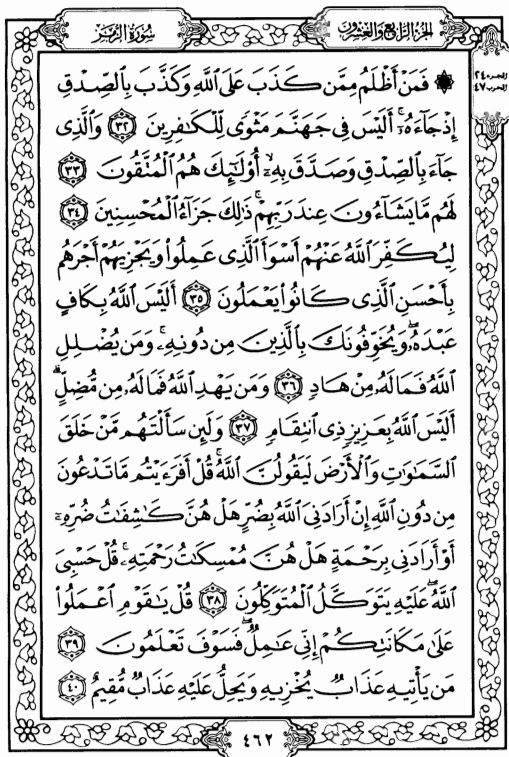 سُورَةُ الزُّمَرِ
الجُزْءُ الرَّابِعُ وَالعِشْرُونَ
۞ فَمَنْ أَظْلَمُ مِمَّن كَذَبَ عَلَى ٱللَّهِ وَكَذَّبَ بِٱلصِّدْقِ
إِذْ جَآءَهُۥٓ ۚ أَلَيْسَ فِى جَهَنَّمَ مَثْوًى لِّلْكَٰفِرِينَ ٣٢ وَٱلَّذِى
جَآءَ بِٱلصِّدْقِ وَصَدَّقَ بِهِۦٓ ۙ أُو۟لَٰٓئِكَ هُمُ ٱلْمُتَّقُونَ ٣٣
لَهُم مَّا يَشَآءُونَ عِندَ رَبِّهِمْ ۚ ذَٰلِكَ جَزَآءُ ٱلْمُحْسِنِينَ ٣٤
لِيُكَفِّرَ ٱللَّهُ عَنْهُمْ أَسْوَأَ ٱلَّذِى عَمِلُوا۟ وَيَجْزِيَهُمْ أَجْرَهُم
بِأَحْسَنِ ٱلَّذِى كَانُوا۟ يَعْمَلُونَ ٣٥ أَلَيْسَ ٱللَّهُ بِكَافٍ
عَبْدَهُۥ ۖ وَيُخَوِّفُونَكَ بِٱلَّذِينَ مِن دُونِهِۦ ۚ وَمَن يُضْلِلِ
ٱللَّهُ فَمَا لَهُۥ مِنْ هَادٍ ٣٦ وَمَن يَهْدِ ٱللَّهُ فَمَا لَهُۥ مِن مُّضِلٍّ ۗ
أَلَيْسَ ٱللَّهُ بِعَزِيزٍ ذِى ٱنتِقَامٍ ٣٧ وَلَئِن سَأَلْتَهُم مَّنْ خَلَقَ
ٱلسَّمَٰوَٰتِ وَٱلْأَرْضَ لَيَقُولُنَّ ٱللَّهُ ۚ قُلْ أَفَرَءَيْتُم مَّا تَدْعُونَ
مِن دُونِ ٱللَّهِ إِنْ أَرَادَنِىَ ٱللَّهُ بِضُرٍّ هَلْ هُنَّ كَٰشِفَٰتُ ضُرِّهِۦٓ
أَوْ أَرَادَنِى بِرَحْمَةٍ هَلْ هُنَّ مُمْسِكَٰتُ رَحْمَتِهِۦ ۚ قُلْ حَسْبِىَ
ٱللَّهُ ۖ عَلَيْهِ يَتَوَكَّلُ ٱلْمُتَوَكِّلُونَ ٣٨ قُلْ يَٰقَوْمِ ٱعْمَلُوا۟
عَلَىٰ مَكَانَتِكُمْ إِنِّى عَٰمِلٌ ۖ فَسَوْفَ تَعْلَمُونَ ٣٩
مَن يَأْتِيهِ عَذَابٌ يُخْزِيهِ وَيَحِلُّ عَلَيْهِ عَذَابٌ مُّقِيمٌ ٤٠
الجزء ٢٤
الحزب ٤٧
٤٦٢